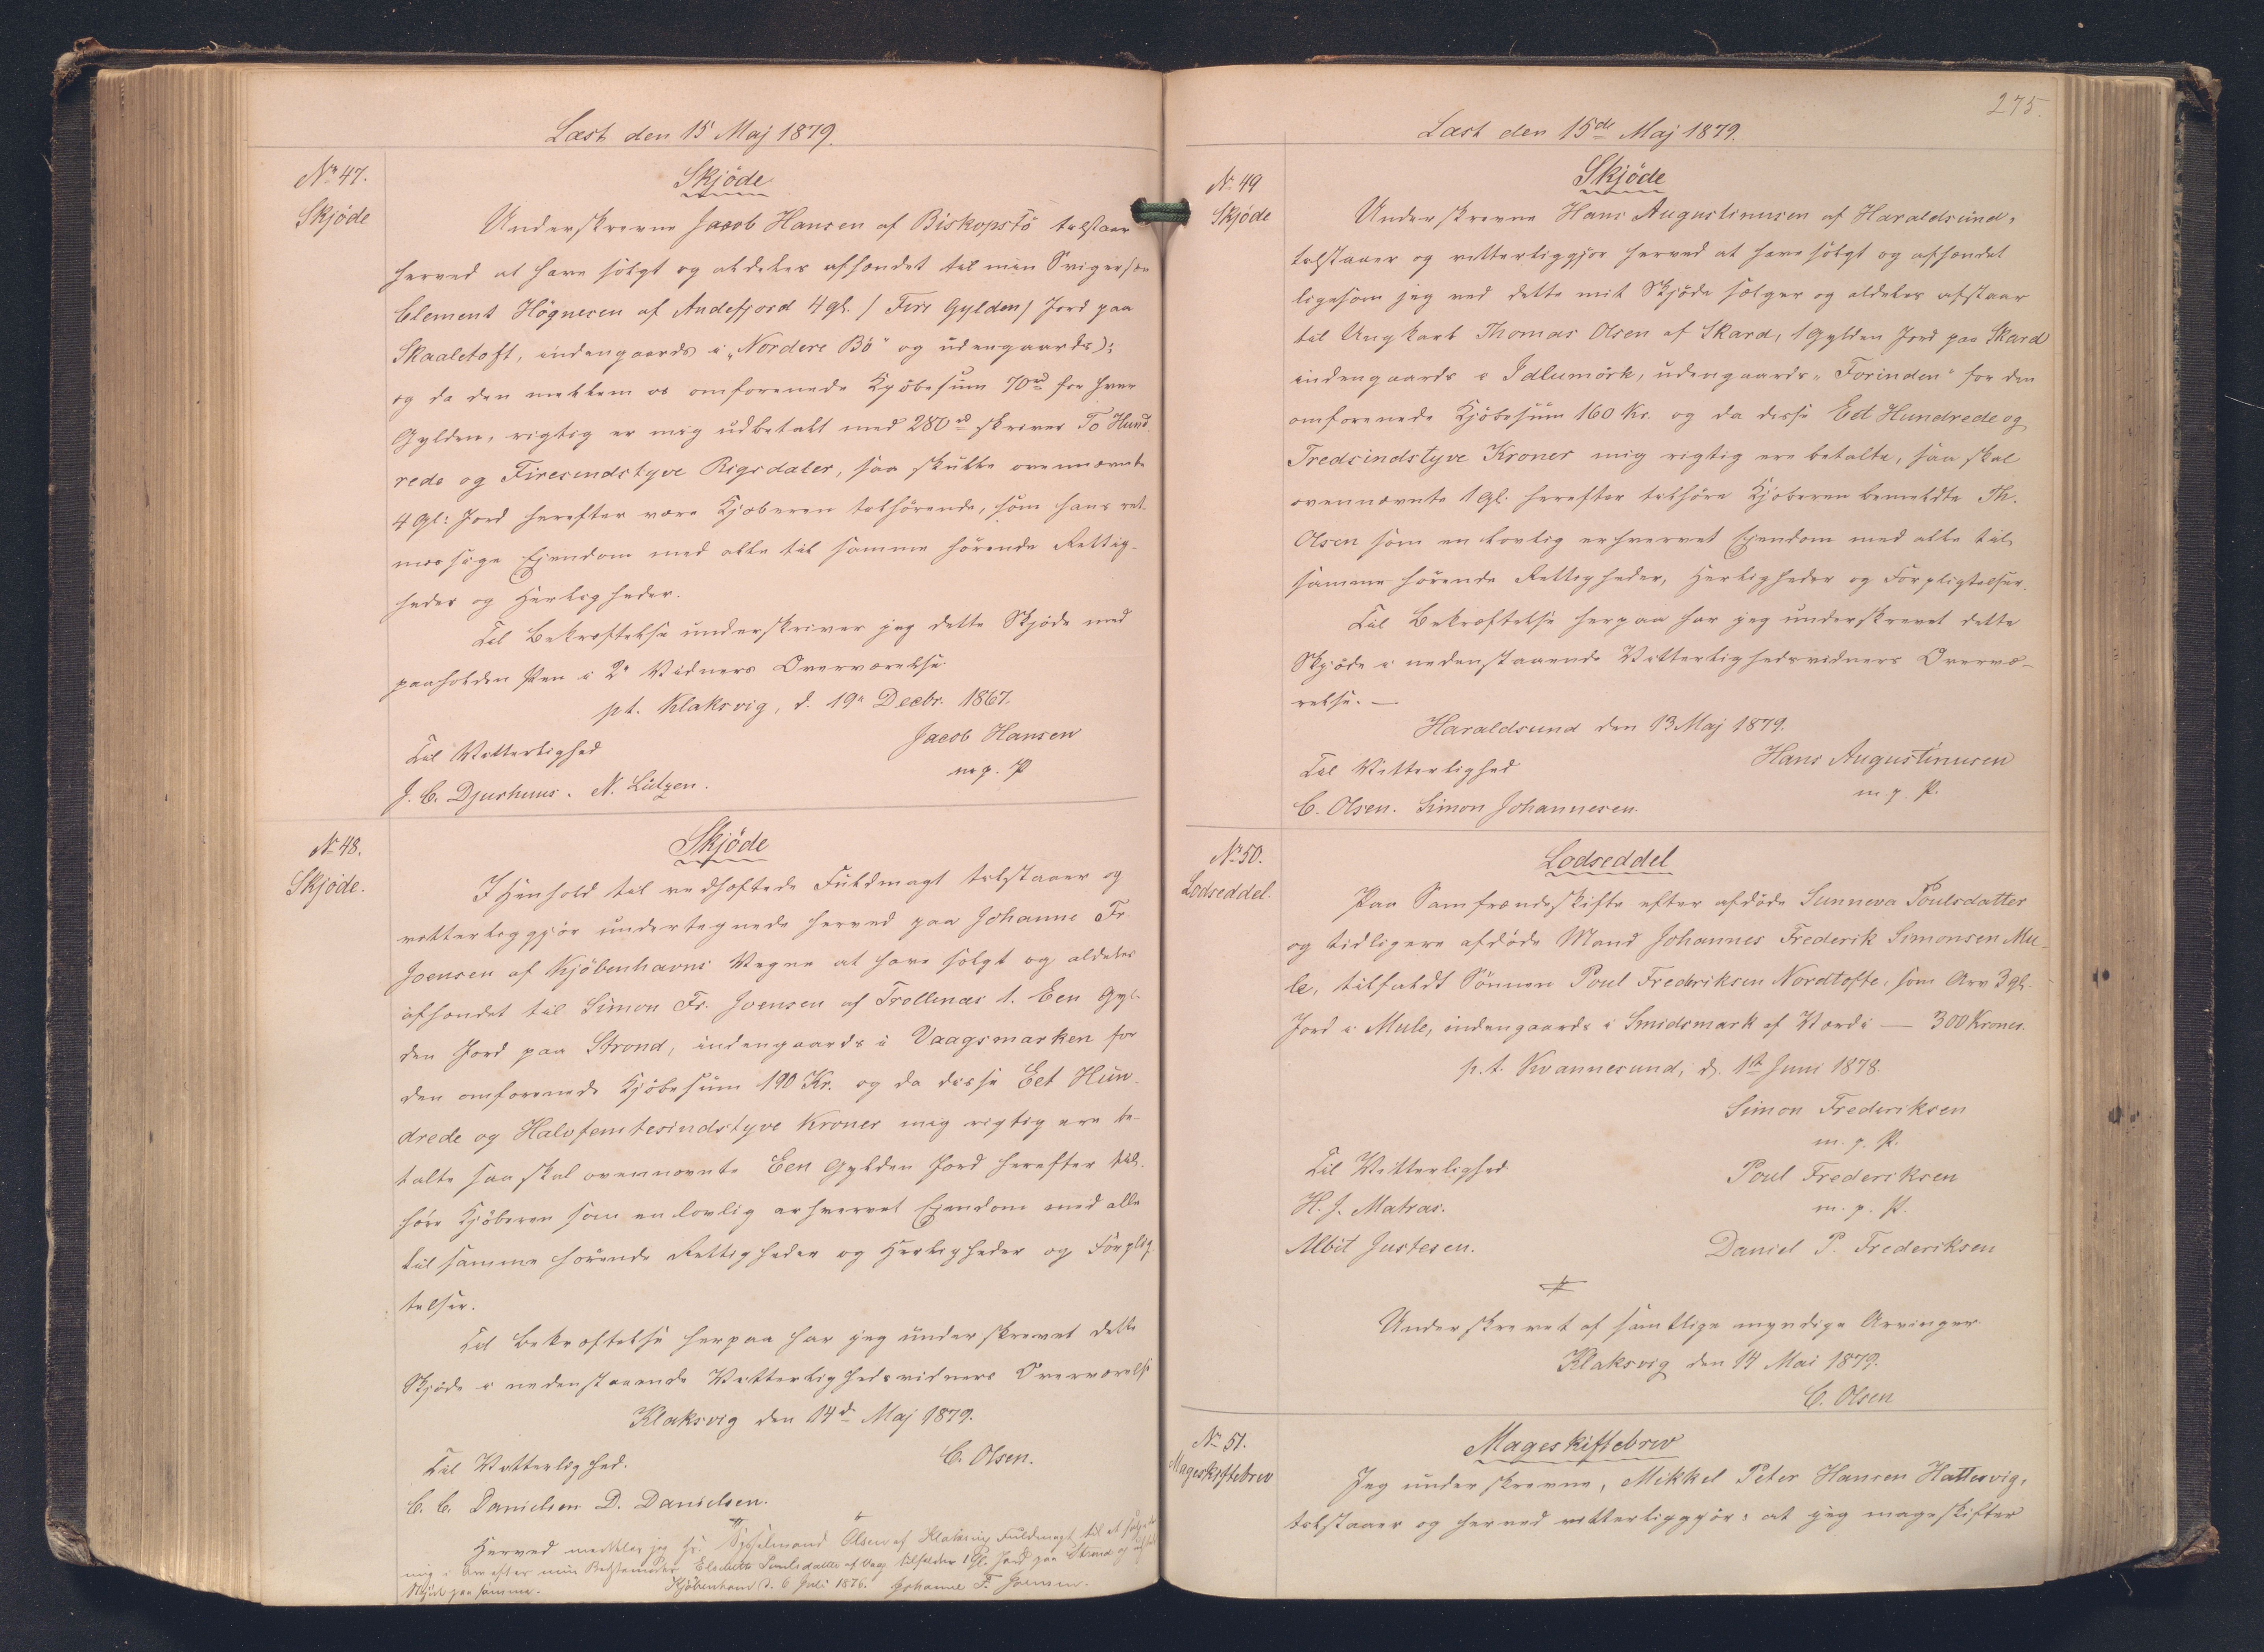 Læst den 15 Maj 1879.
No 47.
Skjöde
Skjöde
Underskrevne Jacob Hansen af Biskopstö tilstaar
herved at have solgt og aldeles afhændet til min Svigersøn
Clement Högnesen af Andefjord 4 gl. / Fire Gylden / Jord paa
Skaaletoft, indengaards i "Nordere Bö" og udengaards);
og da den mellem os omforenede Kjöbesum 70 rd for hver
Gylden, rigtig er mig udbetalt med 280 rd skriver To Hund
rede og Firesindstyve Rigsdaler, saa skulle ovennævnte
4 gl: Jord herefter være Kjøberen tilhörende, som hans ret-
mæssige Ejendom med alle til samme hörende Rettig-
heder og Herligheder.
Til Bekræftelse underskriver jeg dette Skjöde med
paaholden Pen i 2de Vidners Overværelse.
pt. Klaksvig, d. 19de Decbr. 1867.
Jacob Hansen
m. p. P
Til Vitterlighed
J. C. Djurhuus. N. Lützen.
No 48.
Skjöde.
Skjöde
I Henhold til vedhæftede Fuldmagt tilstaaer og
vitterliggjör undertegnede herved paa Johanne Fr.
Joensen af Kjöbenhavns Vegne at have solgt og aldeles
afhændet til Simon Fr. Joensen af Trollenæs 1. Een Gyl-
den Jord paa Strond, indengaards i Vaagsmarken for
den omforenede Kjöbesum 190 Kr. og da disse Eet Hun-
drede og Halvfemtesindstyve Kroner mig rigtig ere be-
talte saa skal ovennævnte Een Gylden Jord herefter til-
höre Kjöberen som en lovlig erhvervet Ejendom med alle
til samme hörende Rettigheder og Herligheder og Forplig-
telser.
Til Bekræftelse herpaa har jeg underskrevet dette
Skjöde i nedenstaaende Vitterlighedsvidners Overværelse
Klaksvig den 14de Maj 1879.
C. Olsen.
Til Vitterlighed.
C. C. Danielsen D. Danielsen.
Herved meddeler jeg Hr. Sysselmand Olsen af Klaksvig Fuldmagt til at sælge
mig i Arv efter min Bedstemoder Elsebeth Poulsdatter af Vaag tilfalden 1 Gl. Jord paa Strand og
Skjöde paa samme. Kjöbenhavn d. 6 Juli 1876. Johanne F. Joensen.
275.
Læst den 15de Maj 1879.
No 49
Skjöde
Skjöde
Underskrevne Hans Augustinusen af Haraldsund,
tilstaaer og vitterliggjör herved at have solgt og afhændet
ligesom jeg ved dette mit Skjöde sælger og aldeles afstaar
til Ungkarl Thomas Olsen af Skard, 1 Gylden Jord paa Skard
indengaards i Idlumörk, udengaards "Forinden" for den
omforenede Kjöbesum 160 Kr. og da disse Et Hundrede og
Tredsindstyve Kroner mig rigtig ere betalte, saa skal
ovennævnte 1 gl. herefter tilhöre Kjöberen bemeldte Th.
Olsen som en lovlig erhvervet Ejendom med alle til
samme hörende Rettigheder, Herligheder og Forpligtelser.
Til Bekræftelse herpaa har jeg underskrevet dette
Skjöde i nedenstaaende Vitterlighedsvidners Overvæ-
relse. —
Haraldsund den 13 Maj 1879.
Hans Augustinusen
m. p. P.
Til Vitterlighed
C. Olsen. Simon Johannesen.
No 50.
Lodseddel.
Lodseddel
Paa Samfrændeskifte efter afdöde Sunneva Poulsdatter
og tidligere afdöde Mand Johannes Frederik Simonsen Mu-
le, tilfaldt Sönnen Poul Frederiksen Nordtofte, som Arv 3 gl.
Jord i Mule, indengaards i Smidsmark af Værdi — 300 Kroner.
p. t. Kvannesund, d. 1st Juni 1878.
Simon Frederiksen
m. p. P.
Til Vitterlighed
Poul Frederiksen
H. J. Matras.
m. p. P.
Albit Justesen.
Daniel P. Frederiksen
Underskrevet af samtlige myndige Arvinger
Klaksvig den 14 Mai 1879.
C. Olsen
No 51.
Mageskiftebrev
Mageskiftebrev
Jeg underskrevne, Mikkel Peter Hansen Hattervig,
tilstaaer og herved vitterliggjör: at jeg mageskifter